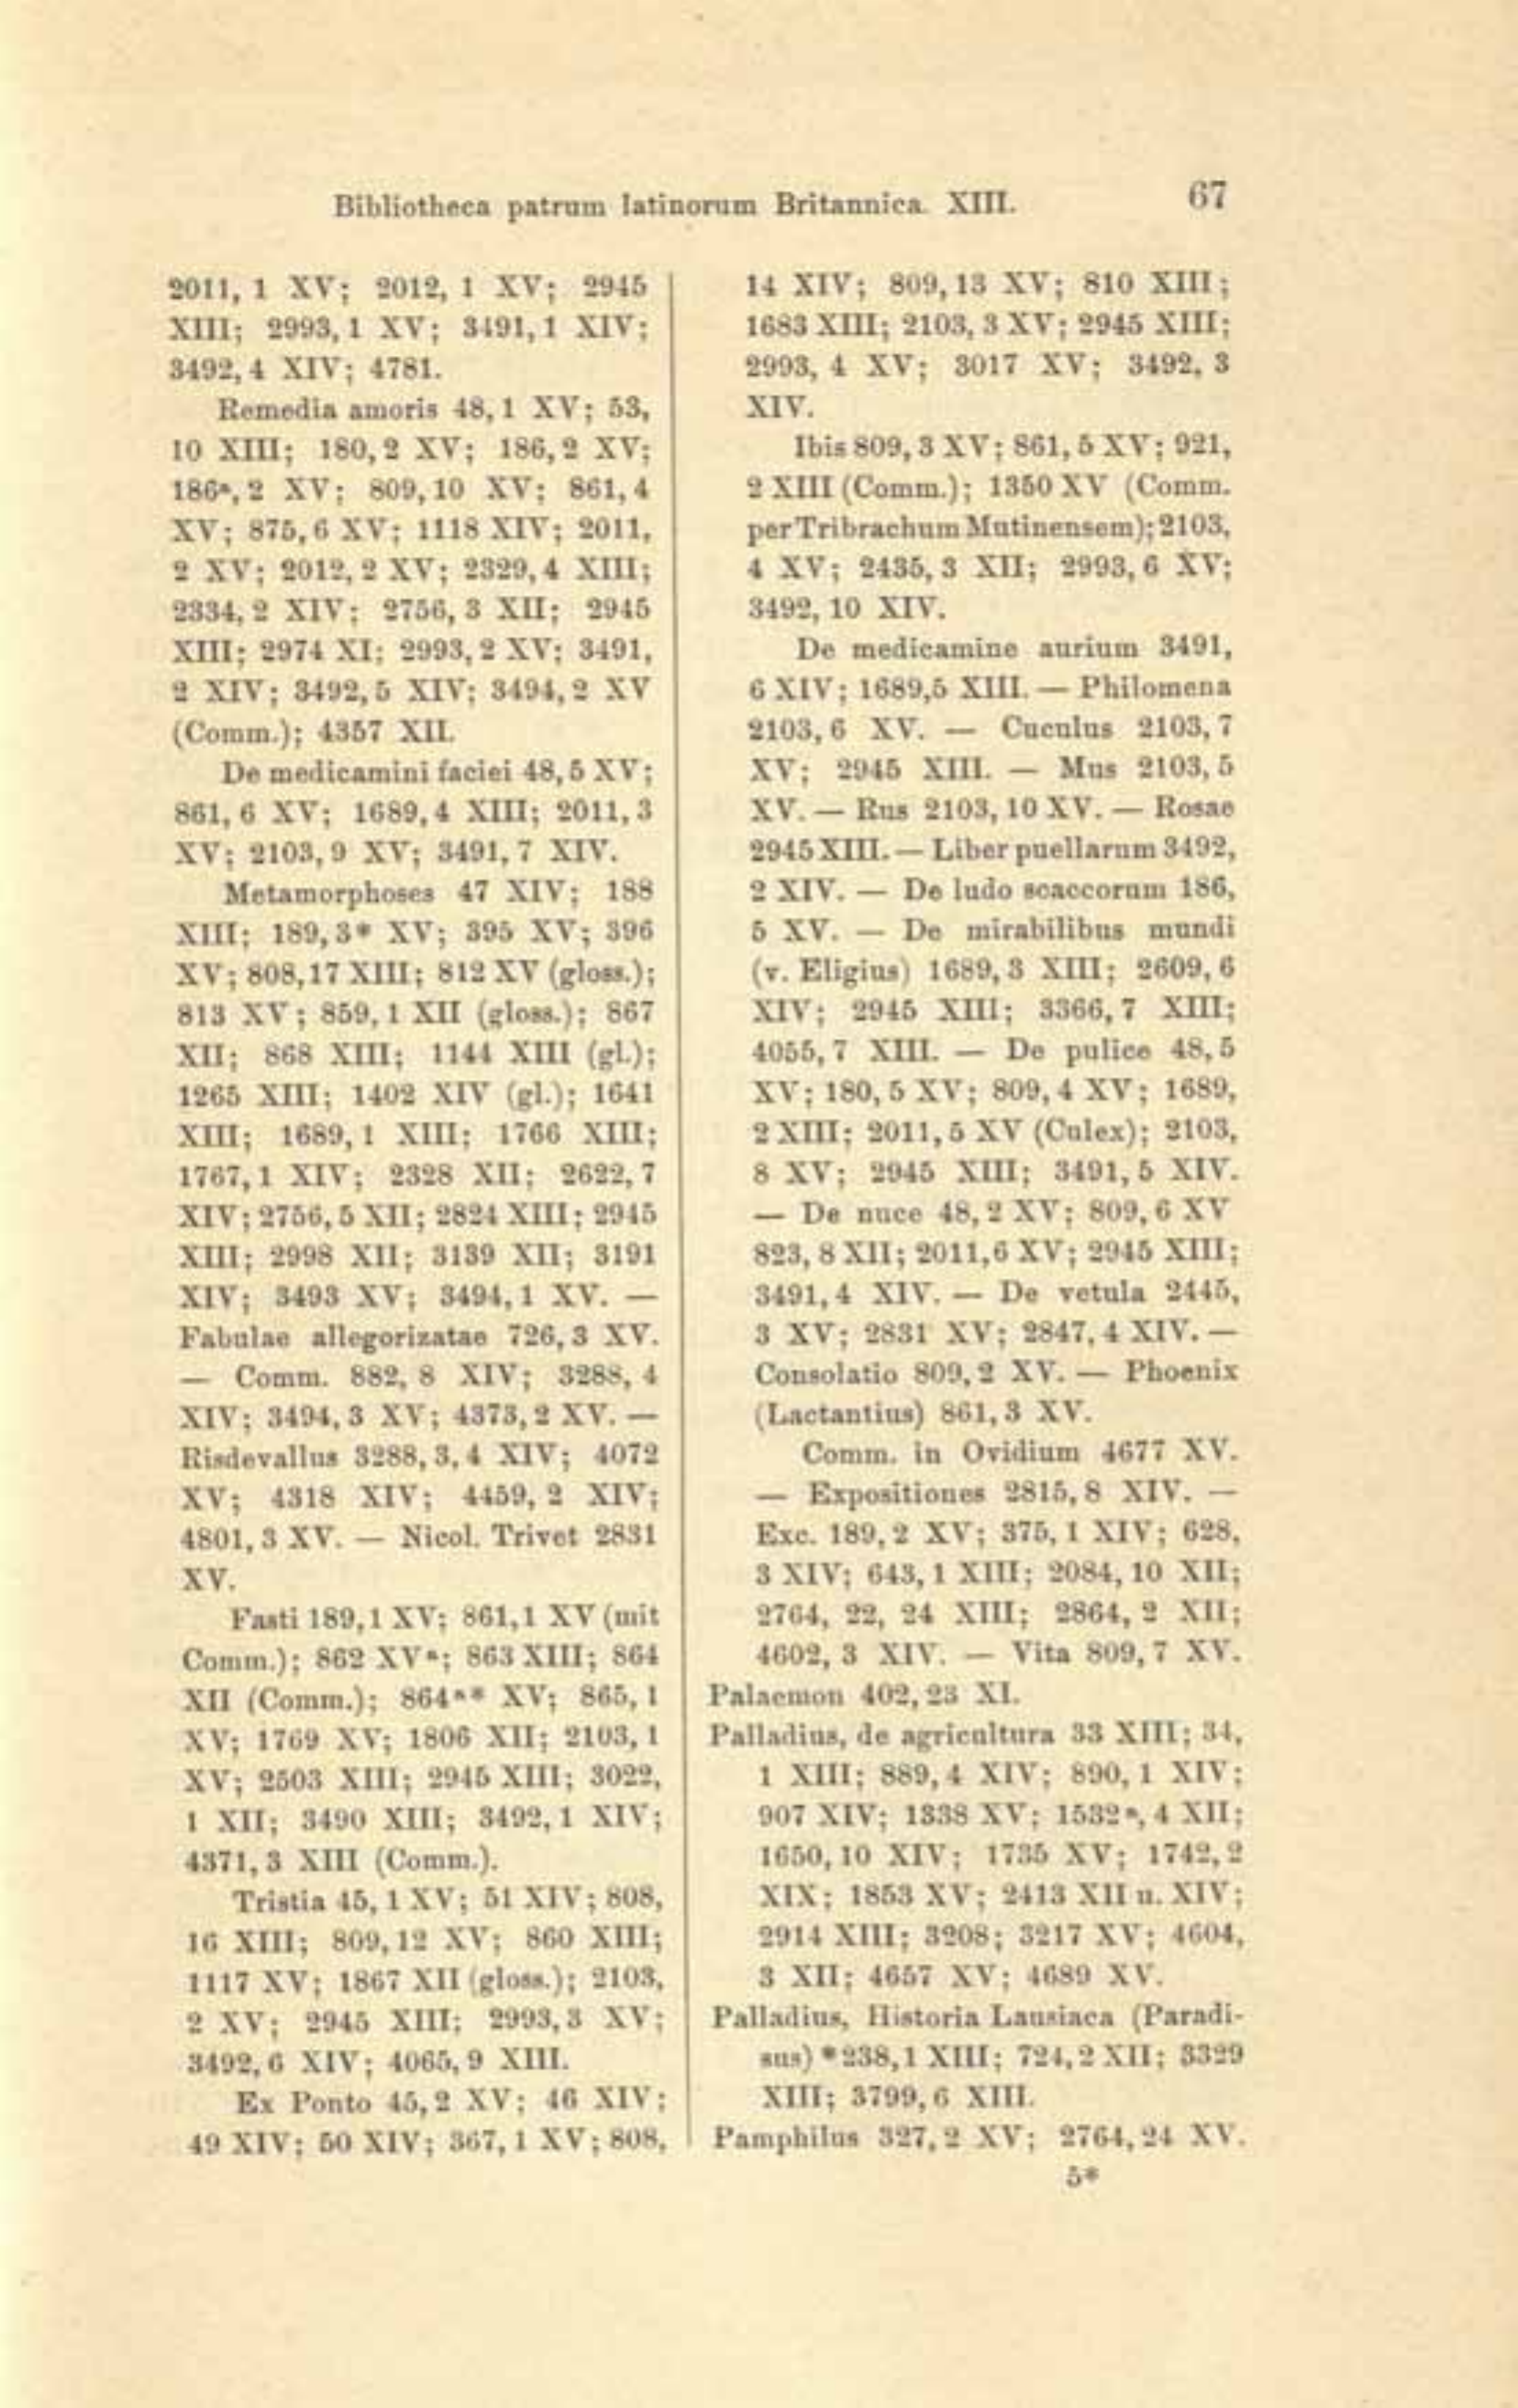 Bibliotheca patrum latinorum Britannica. XIII. 67
2011, 1 XV; 2012, 1 XV; 2945
XIII; 2993, 1 XV; 3491, 1 XIV;
3492, 4 XIV; 4781.
Remedia amoris 48, 1 XV; 53,
10 XIII; 180, 2 XV; 186, 2 XV;
186ᵃ, 2 XV; 809, 10 XV; 861, 4
XV; 875, 6 XV; 1118 XIV; 2011,
2 XV; 2012, 2 XV; 2329, 4 XIII;
2334, 2 XIV; 2756, 3 XII; 2945
XIII; 2974 XI; 2993, 2 XV; 3491,
2 XIV; 3492, 5 XIV; 3494, 2 XV
(Comm.); 4357 XII.
De medicamini faciei 48, 5 XV;
861, 6 XV; 1689, 4 XIII; 2011, 3
XV; 2103, 9 XV; 3491, 7 XIV.
Metamorphoses 47 XIV; 188
XIII; 189, 3* XV; 395 XV; 396
XV; 808, 17 XIII; 812 XV (gloss.);
813 XV; 859, 1 XII (gloss.); 867
XII; 868 XIII; 1144 XIII (gl.);
1265 XIII; 1402 XIV (gl.); 1641
XIII; 1689, 1 XIII; 1766 XIII;
1767, 1 XIV; 2328 XII; 2622, 7
XIV; 2756, 5 XII; 2824 XIII; 2945
XIII; 2998 XII; 3139 XII; 3191
XIV; 3493 XV; 3494, 1 XV. —
Fabulae allegorizatae 726, 3 XV.
— Comm. 882, 8 XIV; 3288, 4
XIV; 3494, 3 XV; 4373, 2 XV. —
Risdevallus 3288, 3, 4 XIV; 4072
XV; 4318 XIV; 4459, 2 XIV;
4801, 3 XV. — Nicol. Trivet 2831
XV.
Fasti 189, 1 XV; 861, 1 XV (mit
Comm.); 862 XVᵃ; 863 XIII; 864
XII (Comm.); 864ᵃ* XV; 865, 1
XV; 1769 XV; 1806 XII; 2103, 1
XV; 2503 XIII; 2945 XIII; 3022,
1 XII; 3490 XIII; 3492, 1 XIV;
4371, 3 XIII (Comm.).
Tristia 45, 1 XV; 51 XIV; 808,
16 XIII; 809, 12 XV; 860 XIII;
1117 XV; 1867 XII (gloss.); 2103,
2 XV; 2945 XIII; 2993, 3 XV;
3492, 6 XIV; 4065, 9 XIII.
Ex Ponto 45, 2 XV; 46 XIV;
49 XIV; 50 XIV; 367, 1 XV; 808,
14 XIV; 809, 13 XV; 810 XIII;
1683 XIII; 2103, 3 XV; 2945 XIII;
2993, 4 XV; 3017 XV; 3492, 3
XIV.
Ibis 809, 3 XV; 861, 5 XV; 921,
2 XIII (Comm.); 1350 XV (Comm.
per Tribrachum Mutinensem); 2103,
4 XV; 2435, 3 XII; 2993, 6 XV;
3492, 10 XIV.
De medicamine aurium 3491,
6 XIV; 1689,5 XIII. — Philomena
2103, 6 XV. — Cuculus 2103, 7
XV; 2945 XIII. — Mus 2103, 5
XV. — Rus 2103, 10 XV. — Rosae
2945 XIII. — Liber puellarum 3492,
2 XIV. — De ludo scaccorum 186,
5 XV. — De mirabilibus mundi
(v. Eligius) 1689, 3 XIII; 2609, 6
XIV; 2945 XIII; 3366, 7 XIII;
4055, 7 XIII. — De pulice 48, 5
XV; 180, 5 XV; 809, 4 XV; 1689,
2 XIII; 2011, 5 XV (Culex); 2103,
8 XV; 2945 XIII; 3491, 5 XIV.
— De nuce 48, 2 XV; 809, 6 XV
823, 8 XII; 2011,6 XV; 2945 XIII;
3491, 4 XIV. — De vetula 2445,
3 XV; 2831 XV; 2847, 4 XIV. —
Consolatio 809, 2 XV. — Phoenix
(Lactantius) 861, 3 XV.
Comm. in Ovidium 4677 XV.
— Expositiones 2815, 8 XIV. —
Exc. 189, 2 XV; 375, 1 XIV; 628,
3 XIV; 643, 1 XIII; 2084, 10 XII;
2764, 22, 24 XIII; 2864, 2 XII;
4602, 3 XIV. — Vita 809, 7 XV.
Palaemon 402, 23 XI.
Palladius, de agricultura 33 XIII; 34,
1 XIII; 889, 4 XIV; 890, 1 XIV;
907 XIV; 1338 XV; 1532ᵃ, 4 XII;
1650, 10 XIV; 1735 XV; 1742, 2
XIX; 1853 XV; 2413 XII u. XIV;
2914 XIII; 3208; 3217 XV; 4604,
3 XII; 4657 XV; 4689 XV.
Palladius, Historia Lausiaca (Paradi-
sus) *238, 1 XIII; 724, 2 XII; 3329
XIII; 3799, 6 XIII.
Pamphilus 327, 2 XV; 2764, 24 XV.
5*